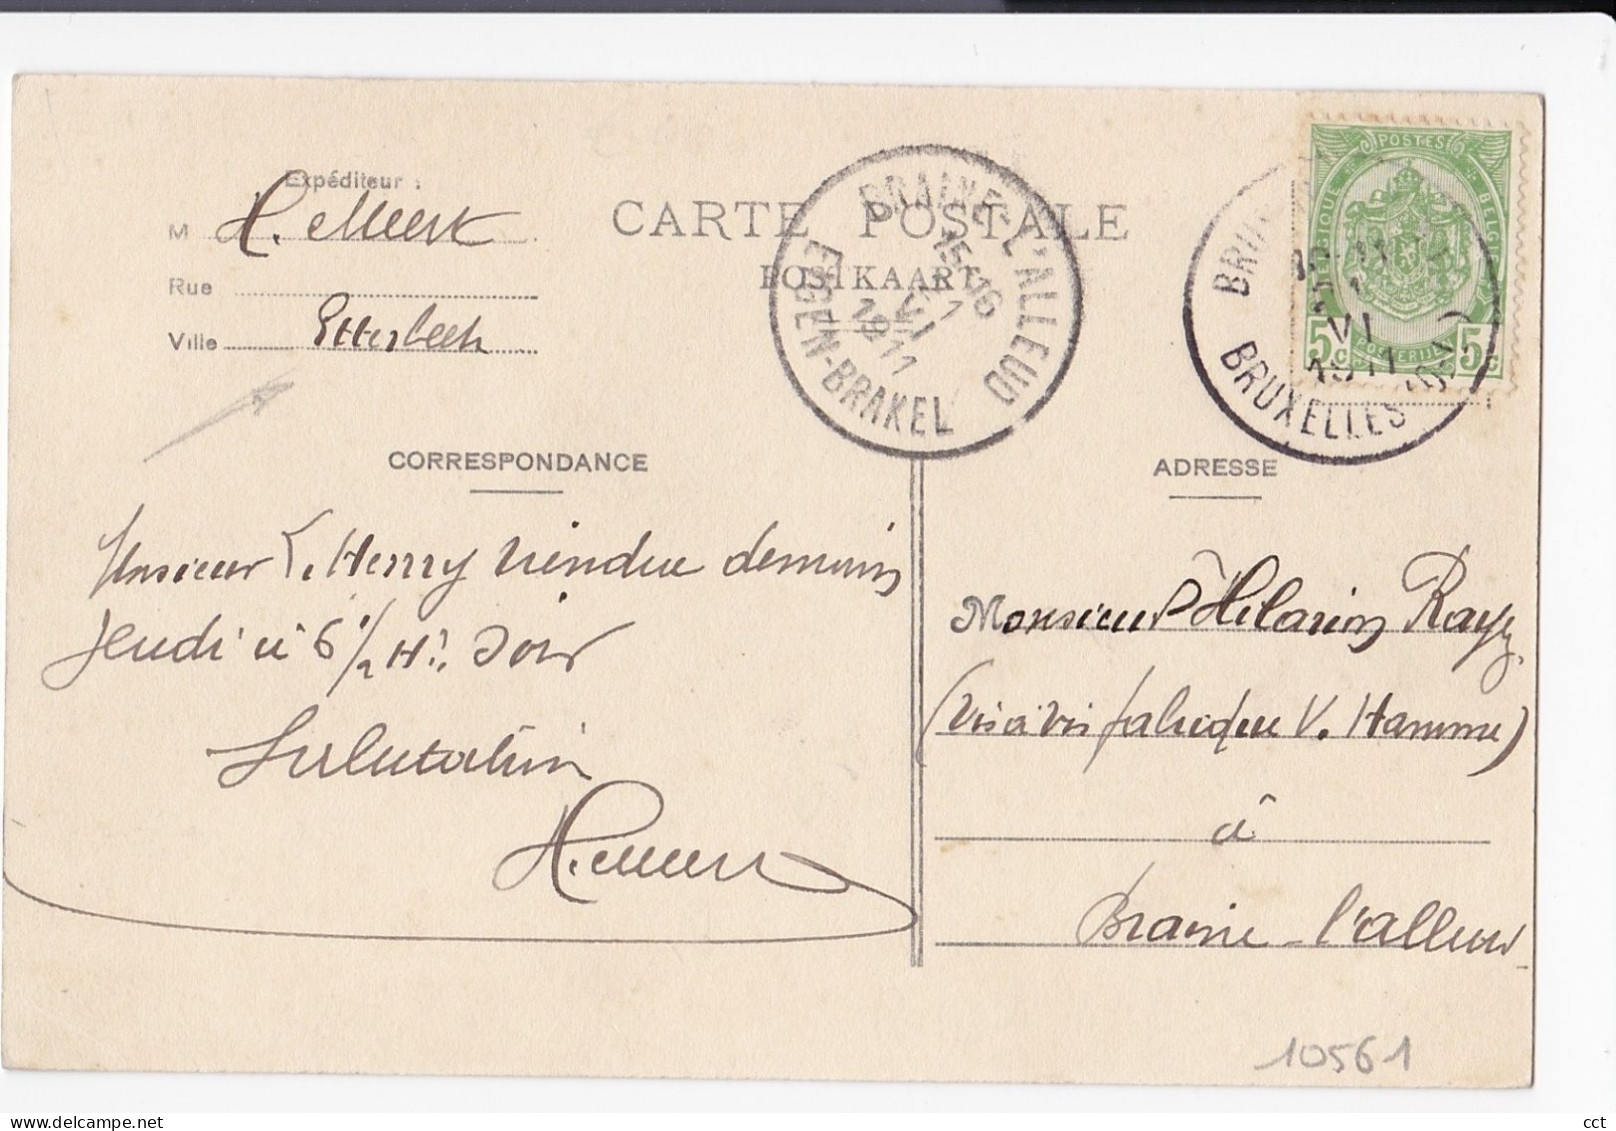 Expéditeur :
M H. Meert
Rue
Ville Etterbeek
CARTE POSTALE
POSTKAART
BRAINE-L'ALLEUD
15-16
1
VI
1911
EIGEN-BRAKEL
POSTES
BELGIQUE
BELGIË
POSTERIJEN
5c 5c
VI
1911
BRUXELLES
CORRESPONDANCE
ADRESSE
Monsieur Henry viendra demain
Jeudi à 6 1/2 H. Soir
Salutation
H. Meert
Monsieur Hilarion
(vis à vis fabrique V. Hamme)
à
Braine-l'alleud
10561
cct